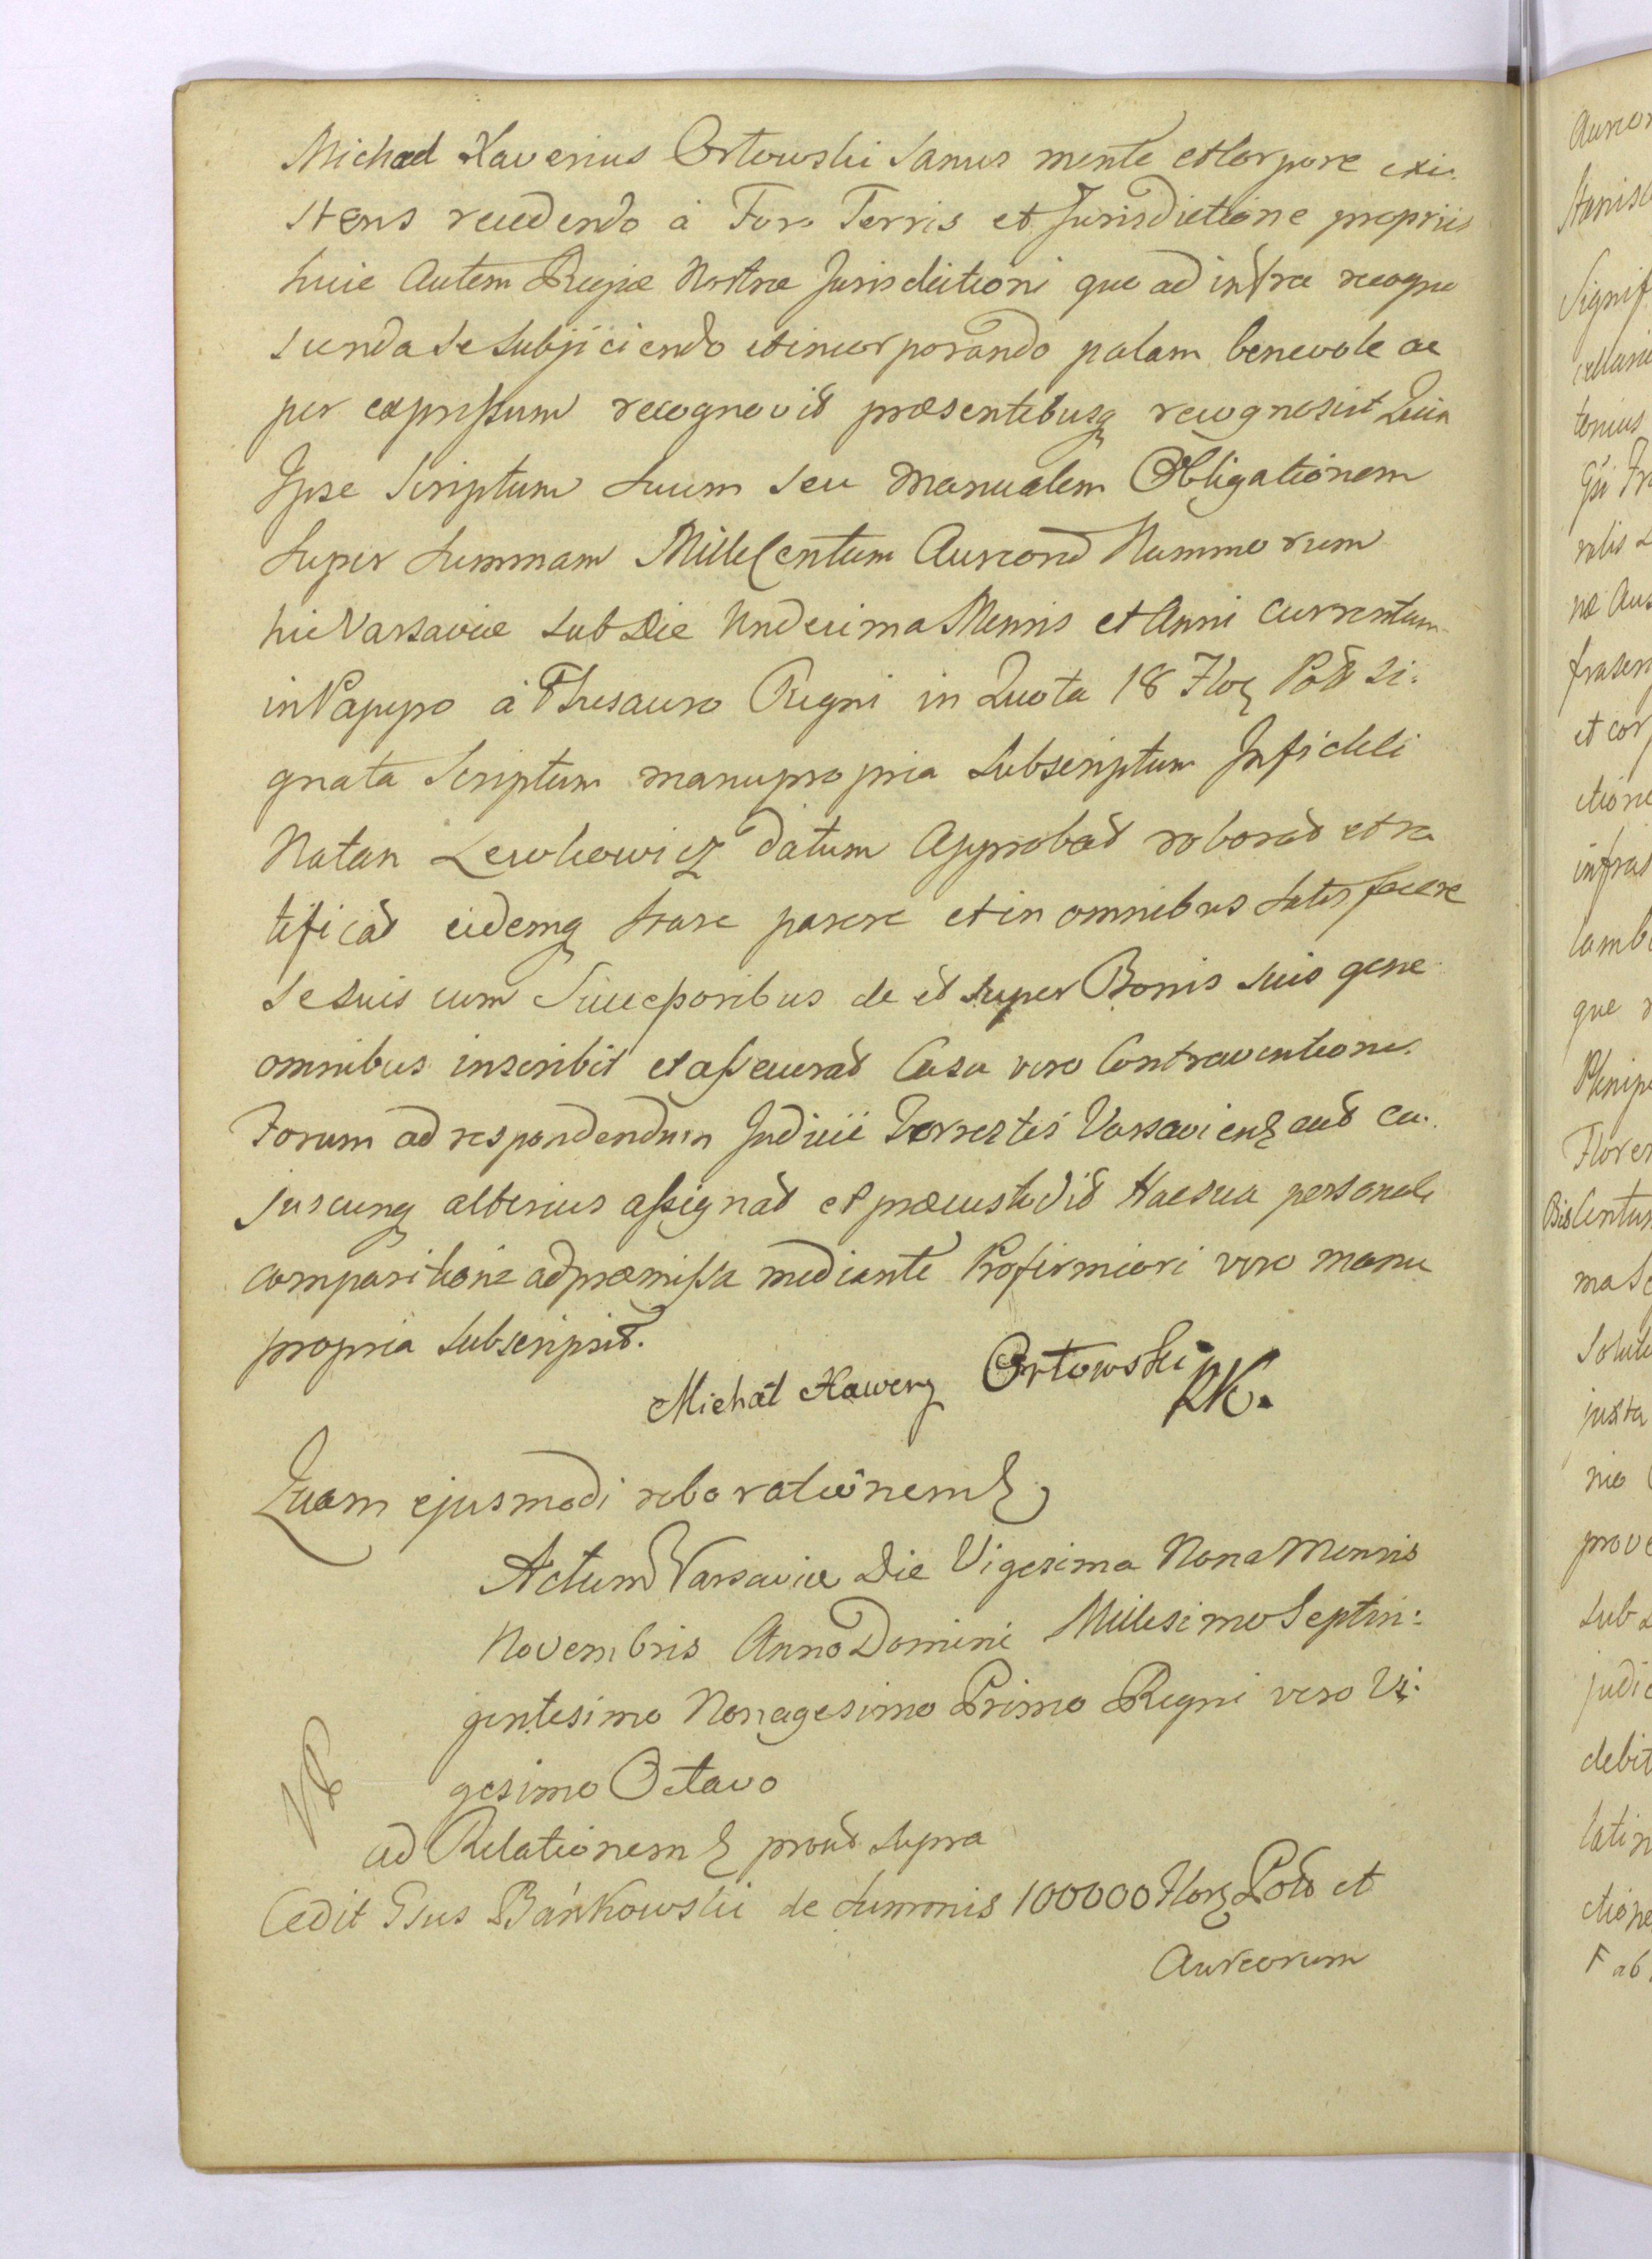 Michael Xaverius Ortowski Sanus mente et Corpore exi-
stens recedendo à Foro Terris et Jurisdictione propriis
huic Autem Regiæ Nostræ Jurisdictioni quo ad infra recogno
scenda se subjiciendo et incorporando palam benevole ac
per expressum recognovit præsentibusq recognoscit Quia
Ipse Scriptum Suum seu Manualem Obligationem
super Summam Mille Centum Aureorũ Nummorum
hic Varsaviæ sub Die Undecima Mensis et Anni Currentium
in Papyro à Thesauro Regni in Quota 18 Flor Poll Si-
gnata Scriptum manu propria Subscriptum Infideli
Natan Lewkowicz datum Approbat roborat et ra
tificat eidemq stare parere et in omnibus satisfacere
se suis cum Successoribus de et super Bonis suis gene
omnibus inscribit et asseverat Casu vero Contraventionis
Forum ad respondendum Judicii Terrestris Varsavien aut cu-
juscunq alterius assignat et præcustodit Hac sua personali
comparitione ad præmissa mediante Pro firmiori vero manu
propria subscripsit.
Michał Xawery Ortowski PK.
Quam ejusmodi roborationem
Actum Varsaviæ Die Vigesima Nona Mensis
Novembris Anno Domini Millesimo Septin-
gentesimo Nonagesimo Primo Regni vero Vi-
gesimo Octavo
ad Relationem prout supra
Cedit Gsus Bańkowski de Summis 100000 Flor Poll et
Aureorum